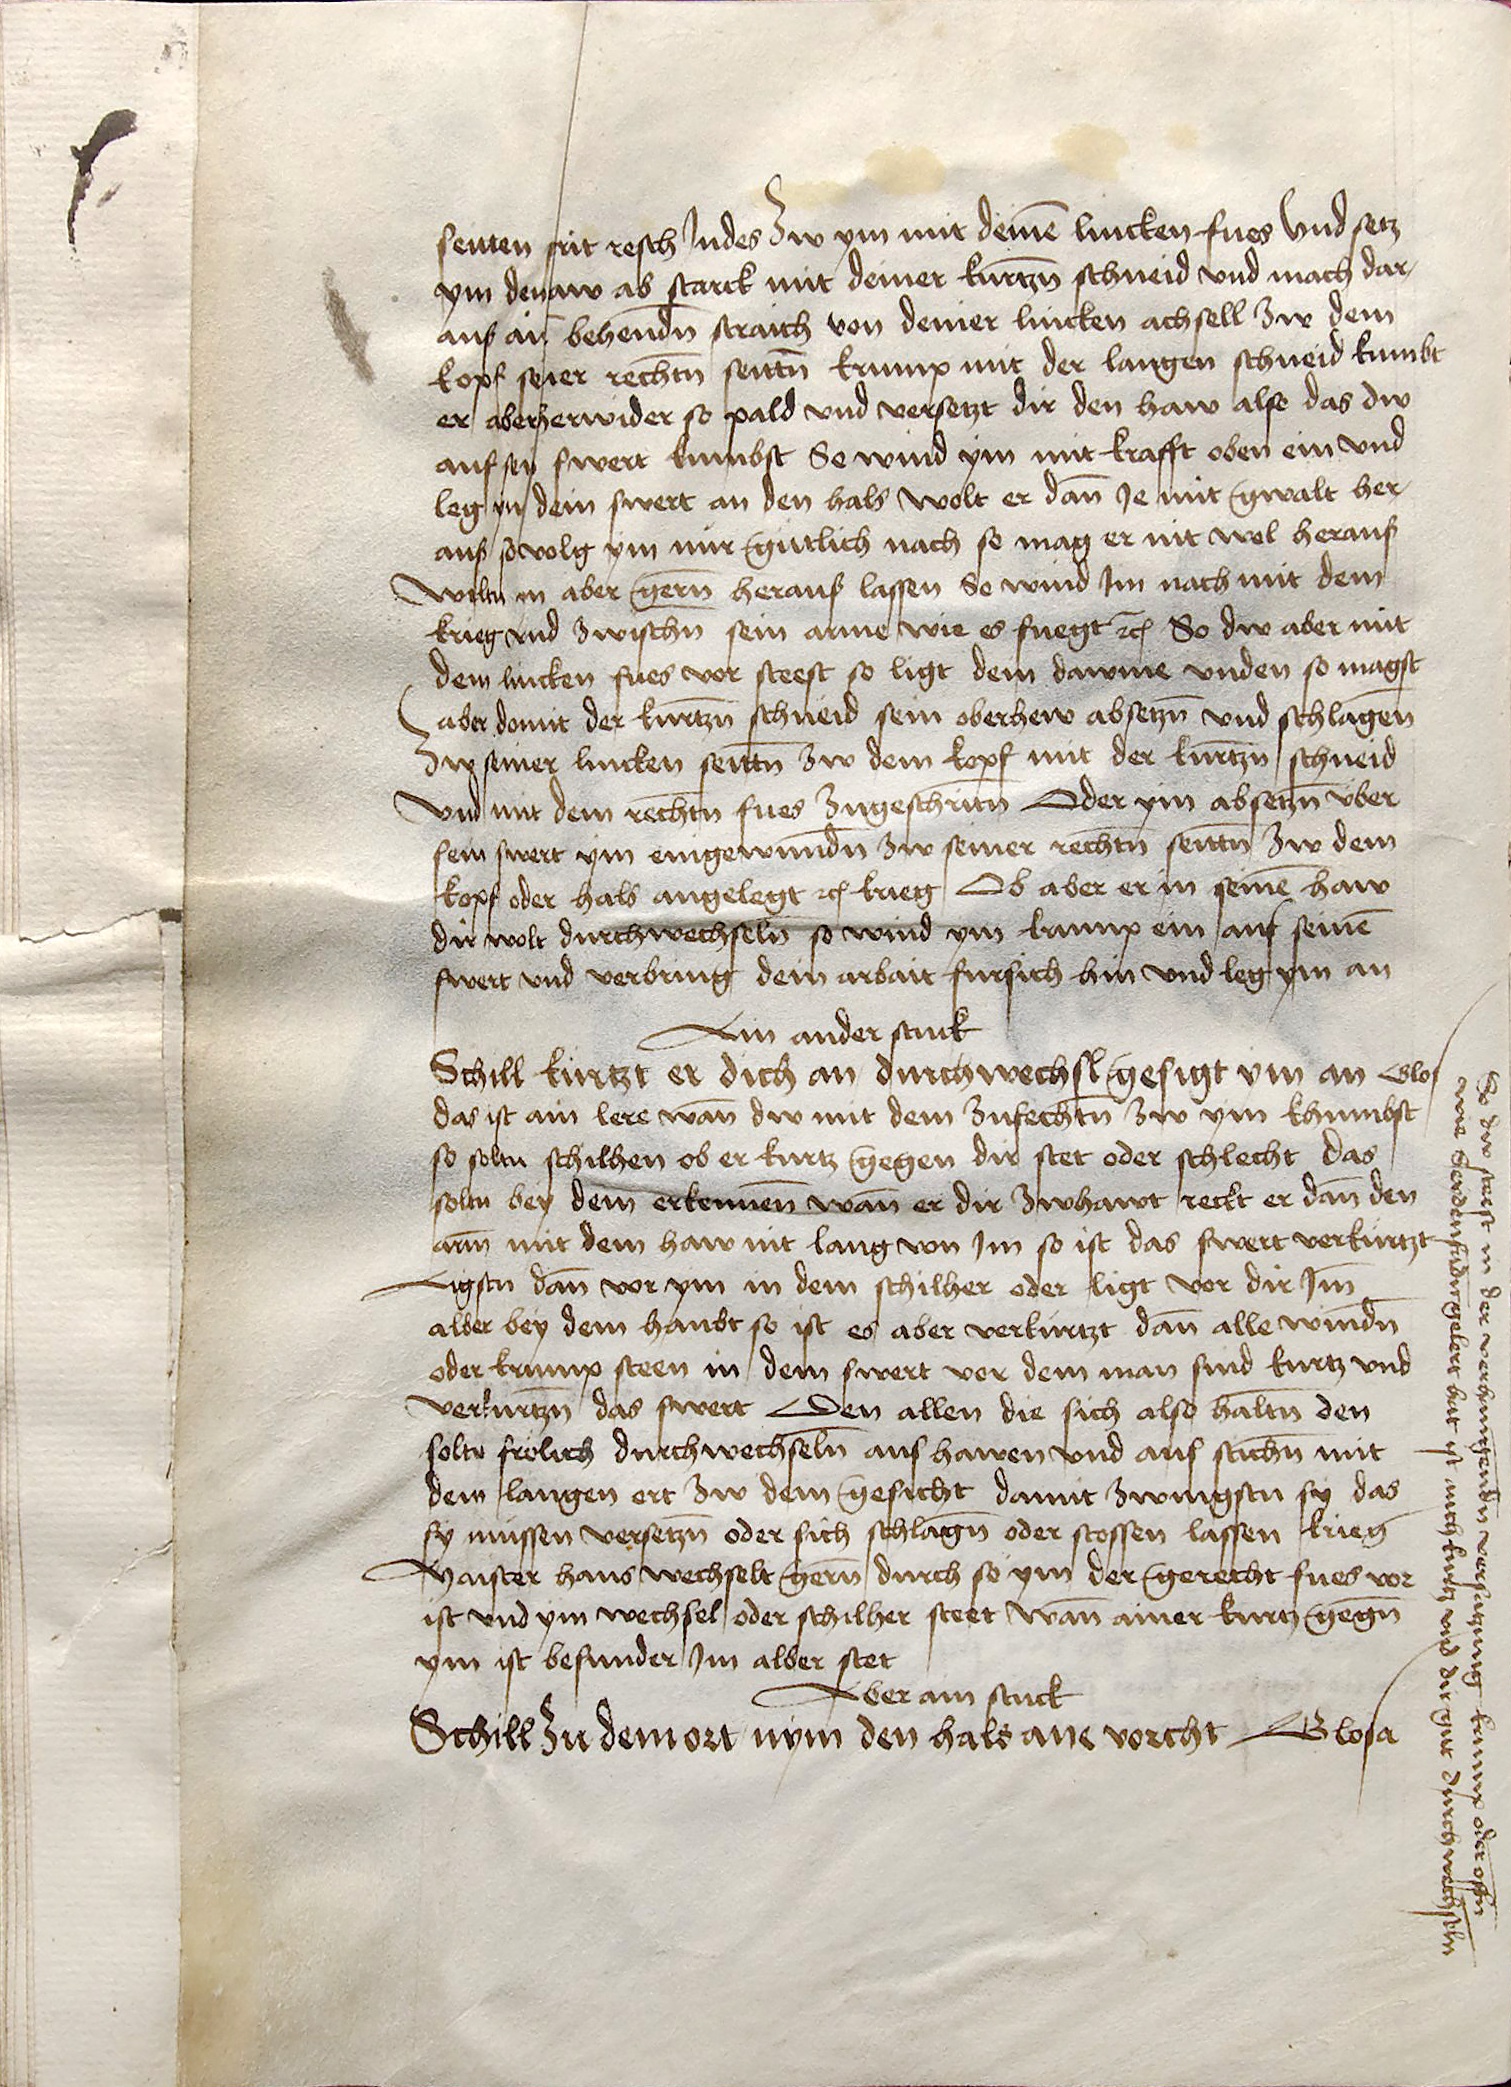 seitten trit resch Indes Zw ym mit deinē lincken fues Vnd setz
ym den aw ab starck mit deiner kurtzn̄ schneid vnd mach dar/
aus ain̄ behendn̄ straich von deiner lincken achsell zw dem
kopf seier rechtn̄ seittn̄ krump mit der langen schneid kumbt
er aber herwider so pald vnd versetzt dir den haw also das dw
auf sey swert kumbst So wind ym mit krafft oben ein vnd
leg ym dein swert an den hals wolt er dan̄ Je mit gwalt her/
auß so volg ym nur gütlich nach so mag er nit wol herauß
Woltu in aber gern̄ herauß lassen So wind Im nach mit dem
krieg vnd zwischn̄ sein arme wie es fuegt rc̄ So dw aber mit
dem lincken fues vor steest so ligt dein dawme vnden so magst
aber domit der kurtzn̄ schneid sein oberhew absetzn̄ vnd schlagen̄
Zw seiner lincken seittn̄ zw dem kopf mit der kurtzn̄ schneid
Vnd mit dem rechtn̄ fues zugeschritn̄ Oder ym absetzn̄ über
sein swert ym eingewundn̄ zw seiner rechtn̄ seittn̄ zw dem
kopf oder hals angelegt rc̄ krieg Ob aber er in seinē haw
dir wolt durchwechseln̄ so wind ym krump ein auf seinē
swert vnd verbring dein arbait fursich hin vnd leg ym an
Ain ander stuck
Schill kürtzt er dich an durchwechsl gesigt ym an Glos
das ist ain lere wan̄ dw mit dem zufechtn̄ zw ym khumbst
so soltu schilhen ob er kurtz gegen dir stet oder schlecht das
soltu bey dem erkennen̄ wan̄ er dir zwhawt reckt er dan̄ den
arm̄ mit dem haw nit lang von Im so ist das swert verkürtzt
Ligstu dan̄ vor ym in dem schilher oder ligt vor dir Im̄
alber bey dem haubt so ist es aber verkürtzt dan̄ alle windn̄
oder krump steen in dem swert vor dem man sind kurtz vnd
verkurtzn̄ das swert Den allen die sich also haltn̄ den
soltu frölich durchwechseln̄ aus hawen vnd aus stichn̄ mit
dem langen ort zw dem gesicht damit zwingstu sy das
sy müssen versetzn̄ oder sich schlagn̄ oder stossen lassen krieg
Maister hans wechselt gern̄ durch so ym der gerecht fues vor
ist vnd ym wechsel oder schilher steet wan̄ ainer kurtz gegn̄
ym ist besunder Im alber stet
Aber ain stuck
Schill Zu dem ort nym den hals ane vorcht Glosa
So dw steest in der verhengenden̄ versatzung krump oder offn̄
gelert hat ist auch kurtz vnd dir gut durchwechseln